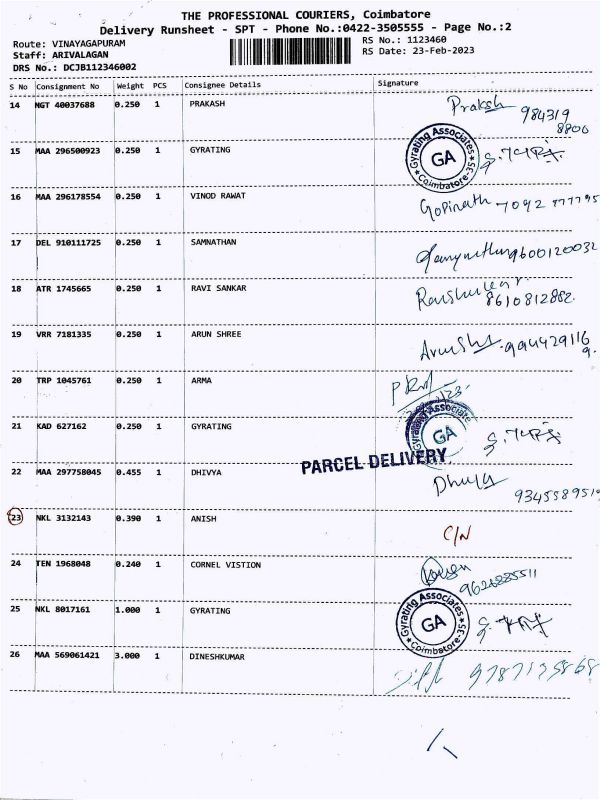 THE PROFESSIONAL COURIERS, Coimbatore
Delivery Runsheet - SPT - Phone No.:0422-3505555 - Page No.:2
Route: VINAYAGAPURAM RS No.: 1123460
Staff: ARIVALAGAN RS Date: 23-Feb-2023
DRS No.: DCJB112346002
S No Consignment No Weight PCS Consignee Details Signature
14 MGT 40037688 0.250 1 PRAKASH Prakash 984319
8806
15 MAA 296500923 0.250 1 GYRATING Gyrating Associates GA Coimbatore-35
16 MAA 296178554 0.250 1 VINOD RAWAT Gopinath 7092 777795
17 DEL 910111725 0.250 1 SAMNATHAN 9600120032
18 ATR 1745665 0.250 1 RAVI SANKAR
8610812882
19 VRR 7181335 0.250 1 ARUN SHREE
20 TRP 1045761 0.250 1 ARMA
21 KAD 627162 0.250 1 GYRATING Gyrating Associates GA
PARCEL DELIVERY
22 MAA 297758045 0.455 1 DHIVYA Dhivya
9345589519
23 NKL 3132143 0.390 1 ANISH C/N
24 TEN 1968048 0.240 1 CORNEL VISTION
25 NKL 8017161 1.000 1 GYRATING Gyrating Associates GA Coimbatore-35
26 MAA 569061421 3.000 1 DINESHKUMAR